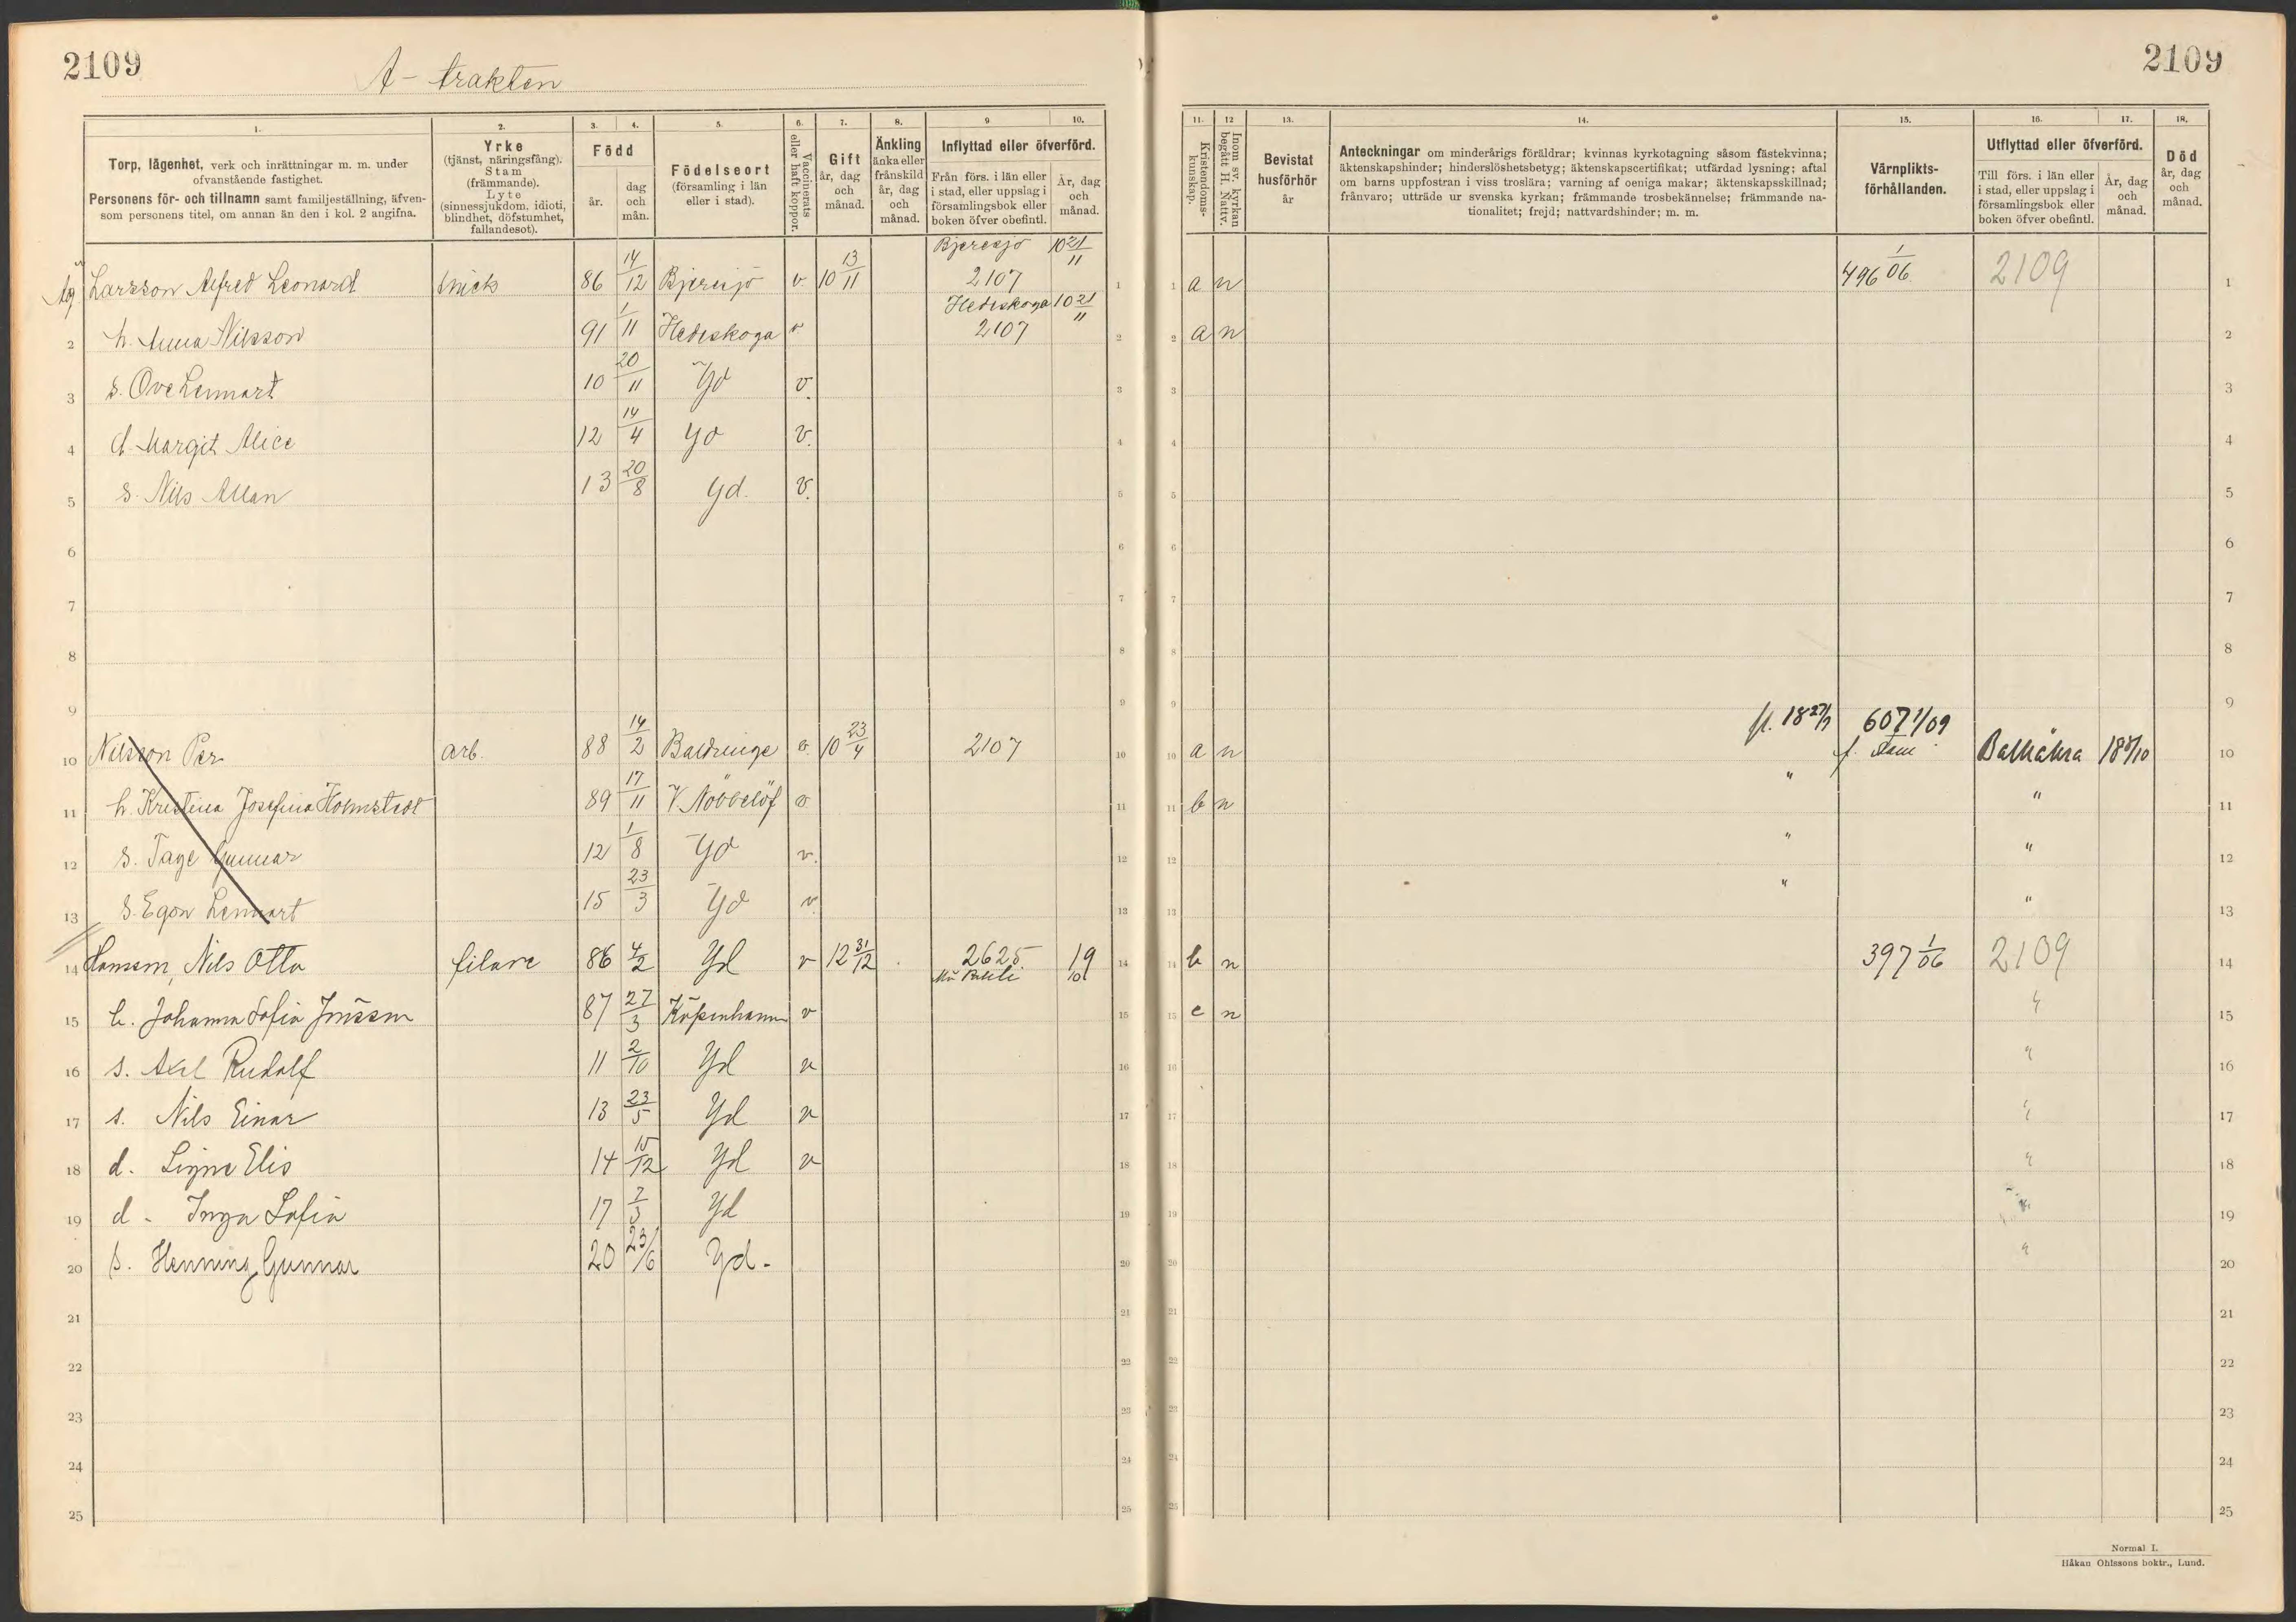 2109
A-trakten
2109
1. 2. 3. 4. 5. 6. 7. 8. 9 10.
Torp, lägenhet, verk och inrättningar m. m. under
ofvanstående fastighet.
Personens för- och tillnamn samt familjeställning, äfven-
som personens titel, om annan än den i kol. 2 angifna.
Yrke
(tjänst, näringsfång).
Stam
(främmande).
Lyte
(sinnessjukdom, idioti,
blindhet, döfstumhet,
fallandesot).
Född
år.
dag
och
mån.
Födelseort
(församling i län
eller i stad).
Vaccinerats
eller haft koppor.
Gift
år, dag
och
månad.
Änkling
änka eller
frånskild
år, dag
och
månad.
Inflyttad eller öfverförd.
Från förs. i län eller
i stad, eller uppslag i
församlingsbok eller
boken öfver obefintl.
År, dag
och
månad.
11. 12 13. 14. 15. 16. 17. 18.
Kristendoms-
kunskap.
Inom sv. kyrkan
begått H. Nattv.
Bevistat
husförhör
år
Anteckningar om minderårigs föräldrar; kvinnas kyrkotagning såsom fästekvinna;
äktenskapshinder; hinderslöshetsbetyg; äktenskapscertifikat; utfärdad lysning; aftal
om barns uppfostran i viss troslära; varning af oeniga makar; äktenskapsskillnad;
frånvaro; utträde ur svenska kyrkan; främmande trosbekännelse; främmande na-
tionalitet; frejd; nattvardshinder; m. m.
Värnplikts-
förhållanden.
Utflyttad eller öfverförd.
Till förs. i län eller
i stad, eller uppslag i
församlingsbok eller
boken öfver obefintl.
År, dag
och
månad.
Död
år, dag
och
månad.
Bjeresjö 10 21/11
Larsson Alfred Leonard snick 86 14/12 Bjeresjö v. 10 13/11 2107 1 1 a n 496 1/06 2109 1
Hedeskoga 10 21/11
2 h. Anna Nilsson 91 1/11 Hedeskoga v 2107 2 2 a n 2
3 s. Ove Lennart 10 20/11 Yd v. 3 3 3
4 d. Margit Alice 12 14/4 Yd v. 4 4 4
5 s. Nils Allan 13 20/8 Yd. v. 5 5 5
6 6 6 6
7 7 7 7
8 8 8 8
9 9 9 9
10 Nilsson Per arb. 88 14/2 Baldringe v. 10 23/4 2107 10 10 a n fl. 18 27/9 607 1/09 Balkåkra 18 8/10 10
11 h. Kristina Josefina Holmstedt 89 17/11 V. Nöbbelöf v 11 11 b n " " 11
12 s. Tage Gunnar 12 1/8 Yd v. 12 12 " " 12
13 s. Egon Lennart 15 23/3 Yd v. 13 13 " " 13
14 Hansson, Nils Otto filare 86 4/2 Yd v 12 31/12 2625 19/10 14 14 b n 397 1/06 2109 14
15 h. Johanna Sofia Jönsson 87 27/3 Köpenhamn v 15 15 c n " 15
16 s. Axel Rudolf 11 2/10 Yd v 16 16 " 16
17 s. Nils Einar 13 23/5 Yd v 17 17 " 17
18 d. Signe Elis 14 15/12 Yd v 18 18 " 18
19 d. Inga Sofia 17 2/3 Yd 19 19 " 19
20 s. Henning Gunnar 20 23/6 Yd. 20 20 " 20
21 21 21 21
22 22 22 22
23 23 23 23
24 24 24 24
25 25 25 25
Normal I.
Håkan Ohlssons boktr., Lund.